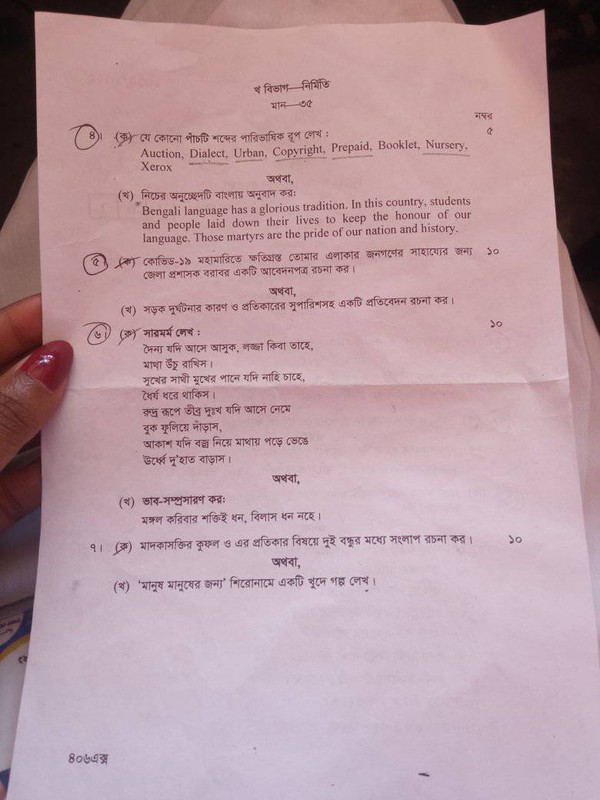 খ বিভাগ—নির্মিতি
মান—৩৫
নম্বর
৪। (ক) যে কোনো পাঁচটি শব্দের পারিভাষিক রূপ লেখ : ৫
Auction, Dialect, Urban, Copyright, Prepaid, Booklet, Nursery,
Xerox
অথবা,
(খ) নিচের অনুচ্ছেদটি বাংলায় অনুবাদ কর:
Bengali language has a glorious tradition. In this country, students
and people laid down their lives to keep the honour of our
language. Those martyrs are the pride of our nation and history.
৫। (ক) কোভিড-১৯ মহামারিতে ক্ষতিগ্রস্ত তোমার এলাকার জনগণের সাহায্যের জন্য ১০
জেলা প্রশাসক বরাবর একটি আবেদনপত্র রচনা কর।
অথবা,
(খ) সড়ক দুর্ঘটনার কারণ ও প্রতিকারের সুপারিশসহ একটি প্রতিবেদন রচনা কর।
৬। (ক) সারমর্ম লেখ : ১০
দৈন্য যদি আসে আসুক, লজ্জা কিবা তাহে,
মাথা উঁচু রাখিস।
সুখের সাথী মুখের পানে যদি নাহি চাহে,
ধৈর্য ধরে থাকিস।
রুদ্র রূপে তীব্র দুঃখ যদি আসে নেমে
বুক ফুলিয়ে দাঁড়াস,
আকাশ যদি বজ্র নিয়ে মাথায় পড়ে ভেঙে
ঊর্ধ্বে দু'হাত বাড়াস।
অথবা,
(খ) ভাব-সম্প্রসারণ কর:
মঙ্গল করিবার শক্তিই ধন, বিলাস ধন নহে।
৭। (ক) মাদকাসক্তির কুফল ও এর প্রতিকার বিষয়ে দুই বন্ধুর মধ্যে সংলাপ রচনা কর। ১০
অথবা,
(খ) 'মানুষ মানুষের জন্য' শিরোনামে একটি খুদে গল্প লেখ।
৪০৬এক্স